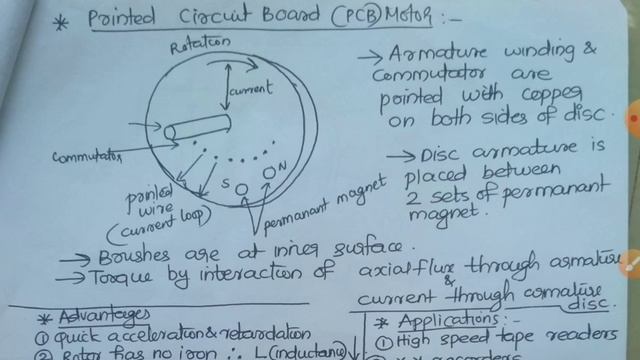 * Printed Circuit Board (PCB) Motor :-
Rotation
current
commutator
printed
wire
(current loop)
S
N
permanant magnet
→ Armature winding &
Commutator are
printed with copper
on both sides of disc.
→ Disc armature is
placed between
2 sets of permanant
magnet.
→ Brushes are at inner surface.
→ Torque by interaction of axial flux through armature
&
current through armature
disc.
* Advantages
① Quick acceleration & retardation
② Rotor has no iron ∴ L (inductance) ↓
* Applications :-
① High speed tape readers